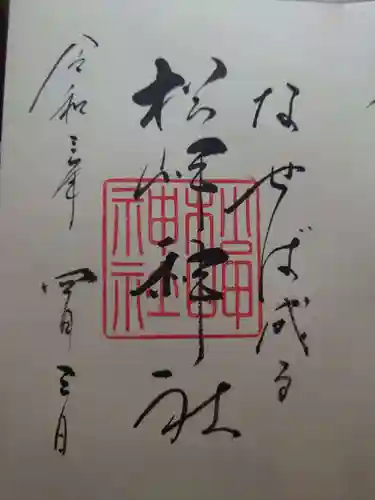 なせば成る
松岬神社
松岬神社
令和三年 四月三日